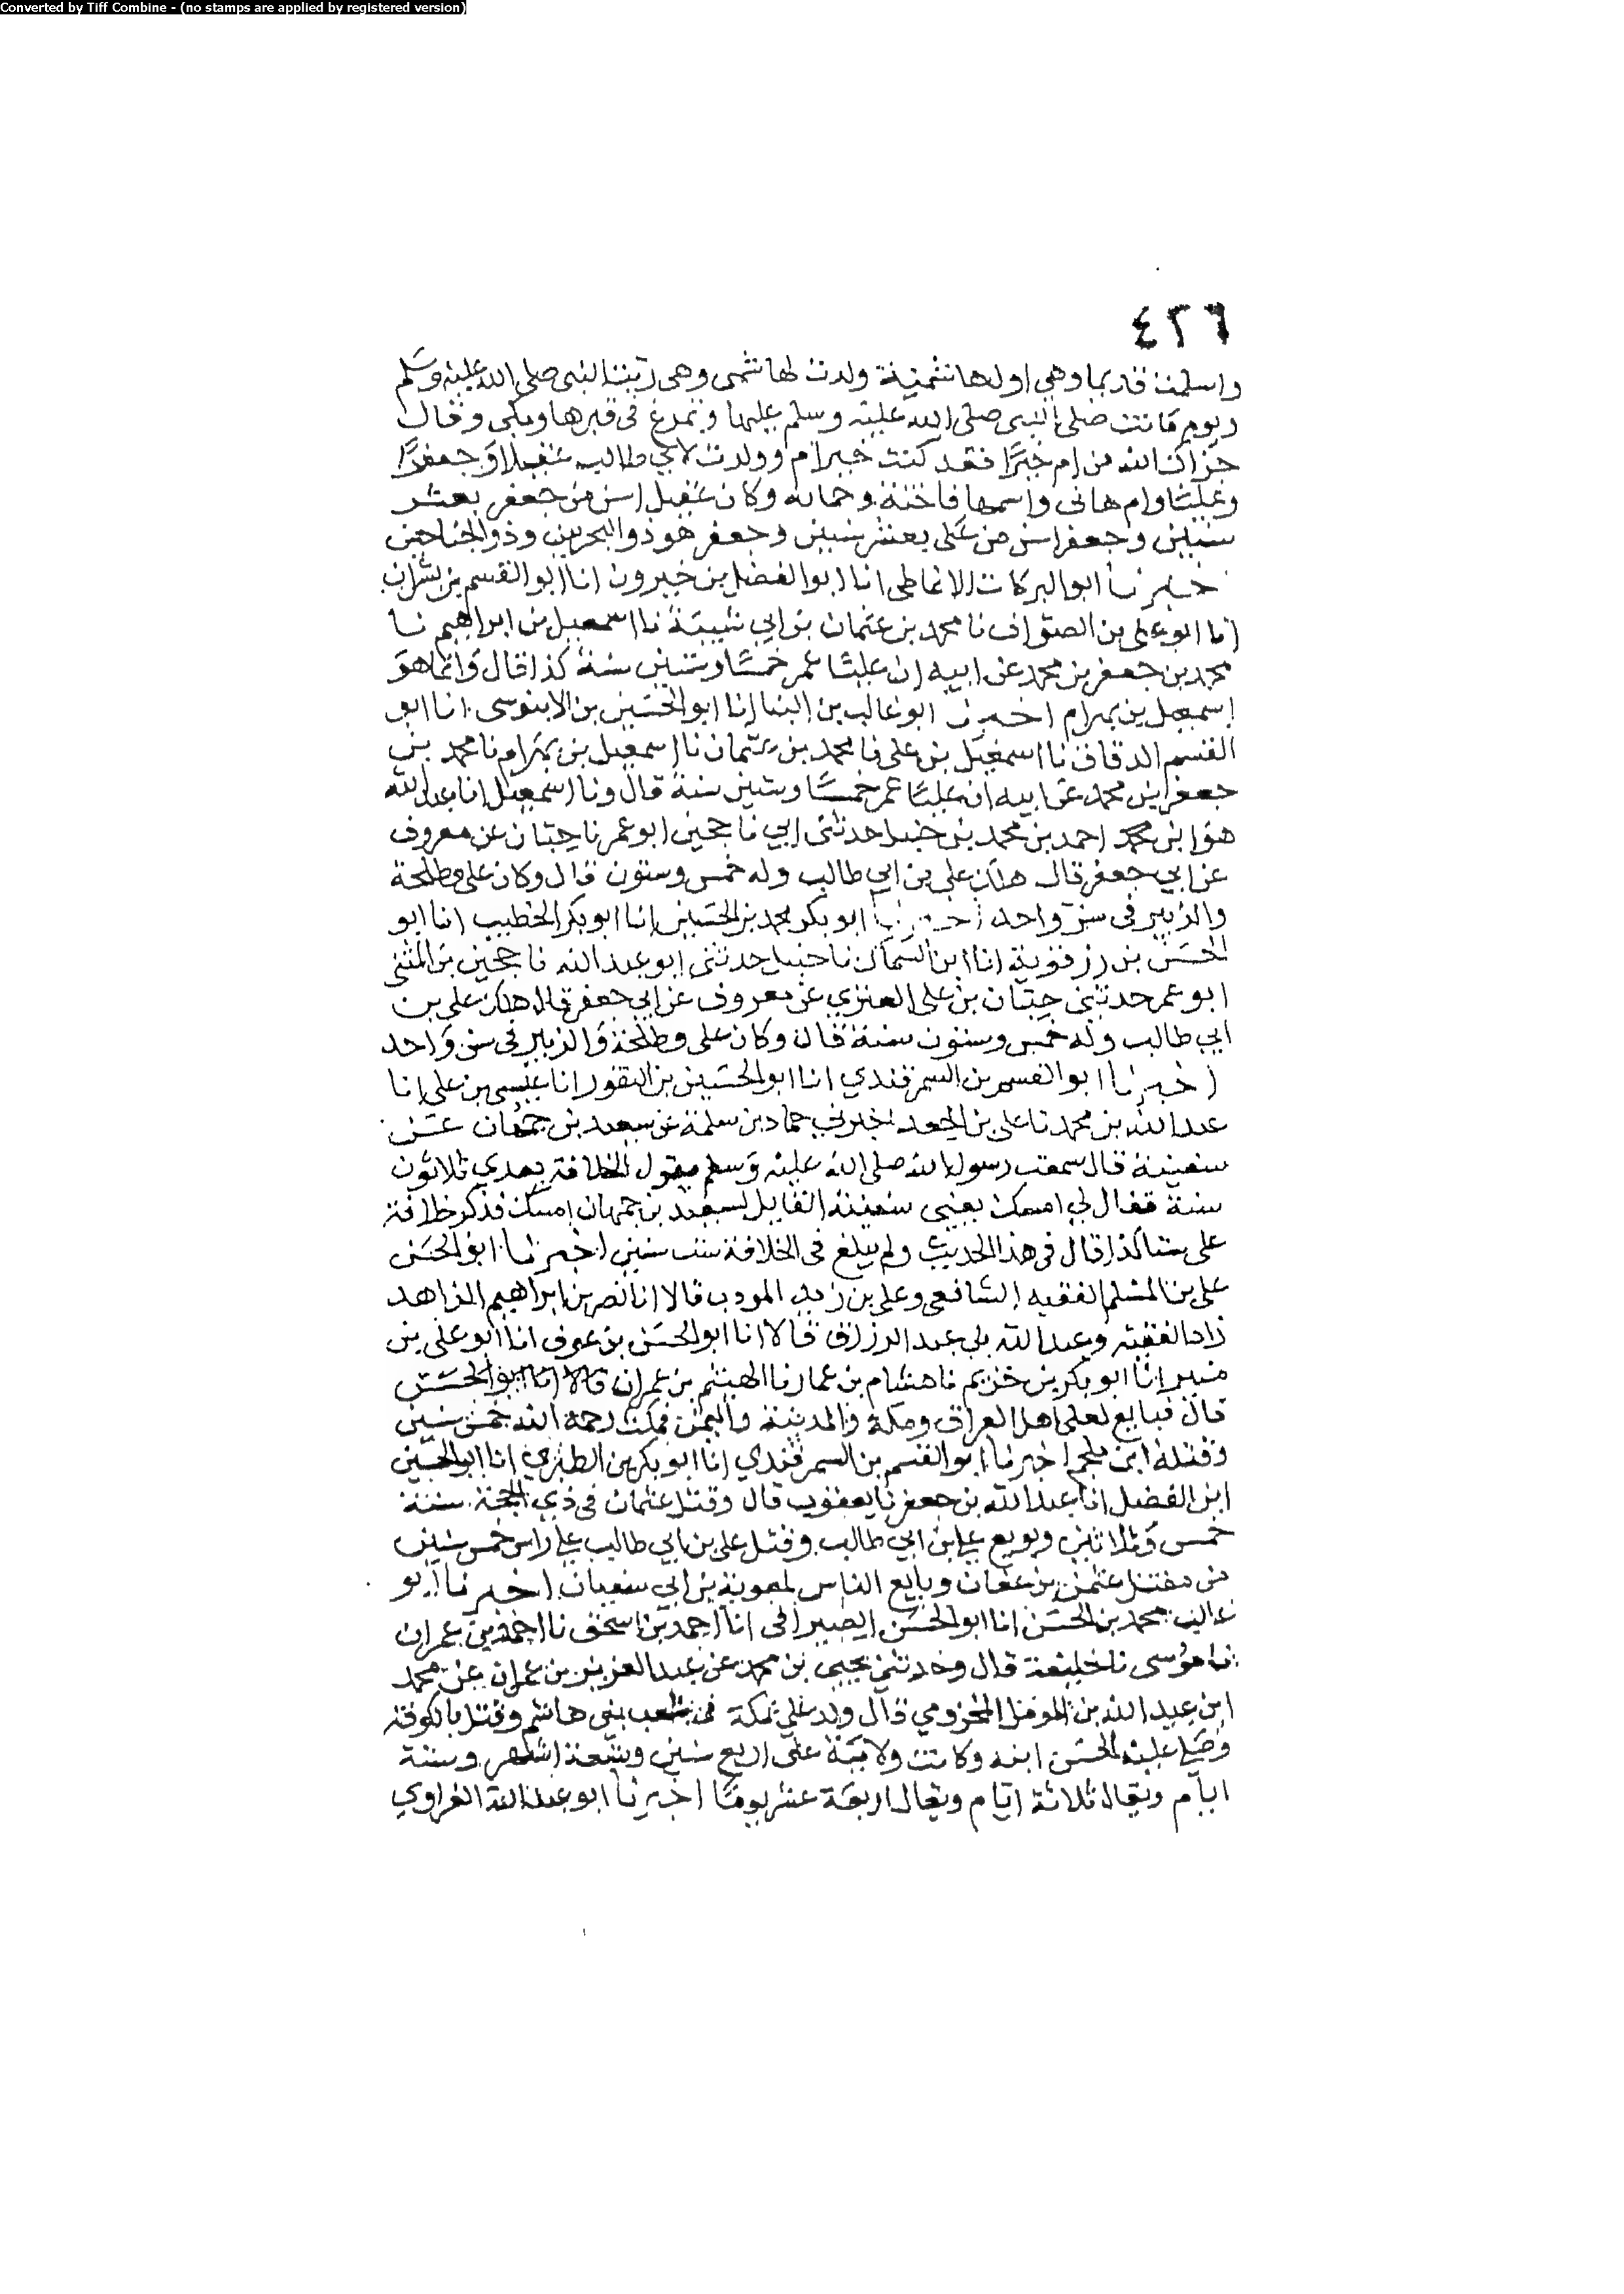 Converted by Tiff Combine - (no stamps are applied by registered version)
٤٢٦
واسلمت قديما وهي اول هاشمية ولدت لهاشمي وهي ربت النبي صلى الله عليه وسلم
ويوم ماتت صلى النبي صلى الله عليه وسلم عليها وتمرغ في قبرها وبكى وقال
جزاك الله من ام خيرا فقد كنت خير ام وولدت لابي طالب عقيلا وجعفرا
وعليا وام هاني واسمها فاختة وجمانة وكان عقيل اسن من جعفر بعشر
سنين وجعفر اسن من على بعشر سنين وجعفر هو ذو الهجرتين وذو الجناحين
اخبرنا ابو البركات الانماطي انا ابو الفضل بن خيرون انا ابو القسم بن بشران
انا ابو على بن الصواف نا محمد بن عثمان بن ابي شيبة نا اسمعيل بن ابراهيم نا
محمد بن جعفر بن محمد عن ابيه ان عليا عمر خمسا وستين سنة كذا قال وانما هو
اسمعيل بن بهرام اخبرنا ابو غالب بن البنا انا ابو الحسين بن الابنوسى انا ابو
القسم الدقاق نا اسمعيل بن على نا محمد بن عثمان نا اسمعيل بن بهرام نا محمد بن
جعفر بن محمد عن ابيه ان عليا عمر خمسا وستين سنة قال ونا اسمعيل انا عبد الله
هو ابن محمد احمد بن محمد بن حنبل حدثنى ابي نا حجين ابو عمر نا حبان عن معروف
عن ابي جعفر قال هلك على بن ابي طالب وله خمس وستون قال وكان على وطلحة
والزبير فى سن واحد اخبرنا ابو بكر محمد بن الحسين انا ابو بكر الخطيب انا ابو
الحسن بن رزقوية انا ابن السماك نا حنبل حدثنى ابو عبد الله نا حجين بن المثنى
ابو عمر حدثنى حبان بن على العنزي عن معروف عن ابي جعفر قال هلك على بن
ابي طالب وله خمس وستون سنة قال وكان على وطلحة والزبير فى سن واحد
اخبرنا ابو القسم بن السمرقندي انا ابو الحسين بن النقور انا عيسى بن على انا
عبد الله بن محمد نا على بن الجعد اخبرني حماد بن سلمة عن سعيد بن جمهان عن
سفينة قال سمعت رسول الله صلى الله عليه وسلم يقول الخلافة بعدي ثلاثون
سنة فقال لي امسك يعنى سفينة القايل لسعيد بن جمهان امسك فذكر خلافة
على ستا كذا قال فى هذا الحديث ولم يبلغ فى الخلافة ست سنين اخبرنا ابو الحسن
على بن المسلم الفقيه الشافعى وعلى بن زيد المودب قالا انا نصر بن ابراهيم الزاهد
زاد الفقيه وعبد الله بن عبد الرزاق قالا انا ابو الحسن بن عوف انا ابو على بن
منير انا ابو بكر بن خزيم نا هشام بن عمار نا الهيثم بن عمران قالا انا ابو الحسن
قال فبايع لعلى اهل العراق ومكة والمدينة واليمن فمكث رحمه الله خمس سنين
وقتله ابن ملجم اخبرنا ابو القسم بن السمرقندي انا ابو بكر بن الطبري انا ابو الحسين
ابن الفضل انا عبد الله بن جعفر نا يعقوب قال وقتل عثمان فى ذي الحجة سنة
خمس وثلاثين وبويع على بن ابي طالب وقتل على بن ابي طالب على راس خمس سنين
من مقتل عثمن بن عفان وبايع الناس لمعوية بن ابي سفيان اخبرنا ابو
غالب محمد بن الحسن انا ابو الحسن الصيرافى انا احمد بن اسحق نا احمد بن عمران
نا موسى نا خليفة قال وحدثنى يحيى بن محمد عن عبد العزيز بن عمران عن محمد
ابن عبيد الله بن المومل المخزومي قال ولد على بمكة فى شعب بنى هاشم وقتل بالكوفة
وصلى عليه الحسن ابنه وكانت ولاية على اربع سنين وتسعة اشهر وستة
ايام ويقال ثلاثة ايام ويقال اربعة عشر يوما اخبرنا ابو عبد الله الفراوي